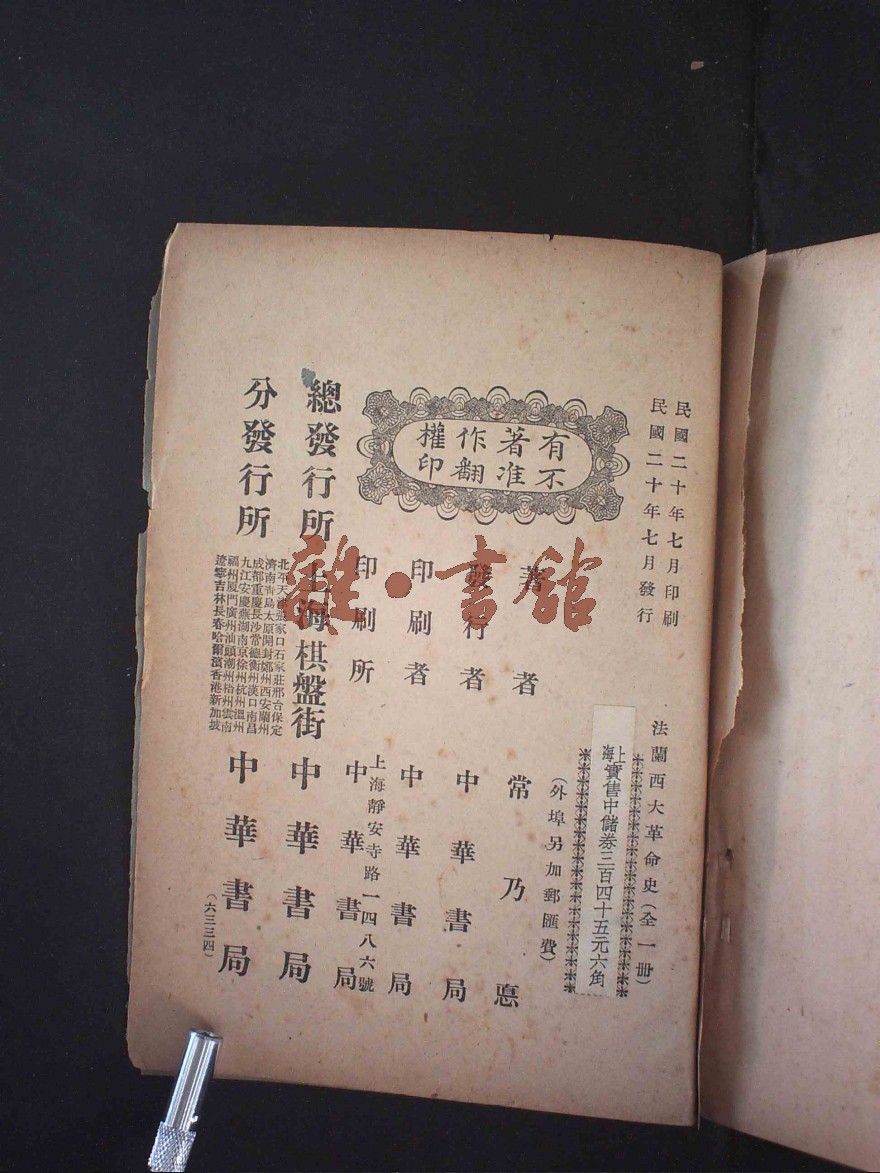 民國二十年七月印刷
民國二十年七月發行
法蘭西大革命史(全一冊)
上海實售中儲券三百四十五元六角
(外埠另加郵匯費)
有著作權
不准翻印
著者 常乃惪
發行者 中華書局
印刷者 中華書局
印刷所 上海靜安寺路一四八六號
中華書局
總發行所 上海棋盤街 中華書局
分發行所
北平天津張家口石家莊邢台保定
濟南青島太原開封鄭州西安蘭州
成都重慶長沙常德衡州漢口南昌
九江安慶蕪湖南京徐州杭州溫州
福州廈門廣州汕頭潮州梧州雲南
遼寧吉林長春哈爾濱香港新加坡
中華書局
(六三三四)
雜·書館